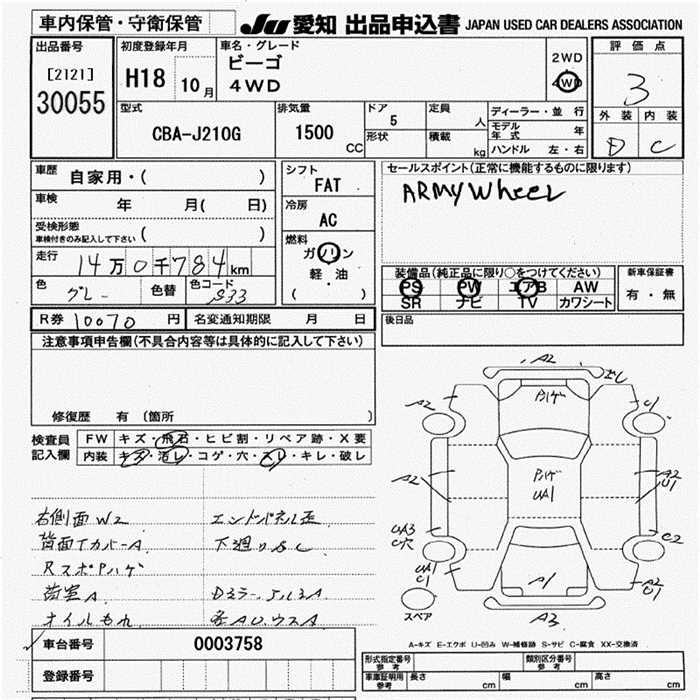 車内保管・守衛保管
JU 愛知 出品申込書 JAPAN USED CAR DEALERS ASSOCIATION
出品番号
[2121]
30055
初度登録年月
H18 10月
車名・グレード
ビーゴ
4WD
2WD
4WD
評価点
3
外装 内装
D C
型式
CBA-J210G
排気量
1500 CC
ドア
5
形状
定員 人
積載 kg
ディーラー・並行
モデル年式 年
ハンドル 左・右
車歴 自家用・( )
車検 年 月( 日)
受検形態
車検付きのみ記入して下さい ( )
走行 14万0千784km
色 グレー 色替 色コード S33
シフト
FAT
冷房
AC
燃料
ガソリン
軽・油
( )
セールスポイント(正常に機能するものに限ります)
ARMY Wheel
装備品(純正品に限り○をつけてください)
PS PW エアB AW
SR ナビ TV カワシート
新車保証書
有・無
R券 10070 円 名変通知期限 月 日
後日品
注意事項申告欄(不具合内容等は具体的に記入して下さい)
修復歴 有 (箇所
検査員記入欄
FW キズ・飛石・ヒビ割・リペア跡・X要
内装 キズ・汚レ・コゲ・穴・スレ・キレ・破レ
右側面W2 エンドパネル歪
背面TカバーA 下廻りSC
RスポPハゲ
歯室A
オイルもれ
A2
A2
C1
Pハゲ
A2
Pハゲ
UA1
A2
U1
UA3
C穴
C2
UA1
C1
A1
A2
U1
スペア
A3
A-キズ E-エクボ U-凹み W-補修跡 S-サビ C-腐食 XX-交換済
車台番号 0003758
登録番号
形式指定番号 参考 類別区分番号 参考
車庫証明用 参考 長さ cm 幅 cm 高さ cm